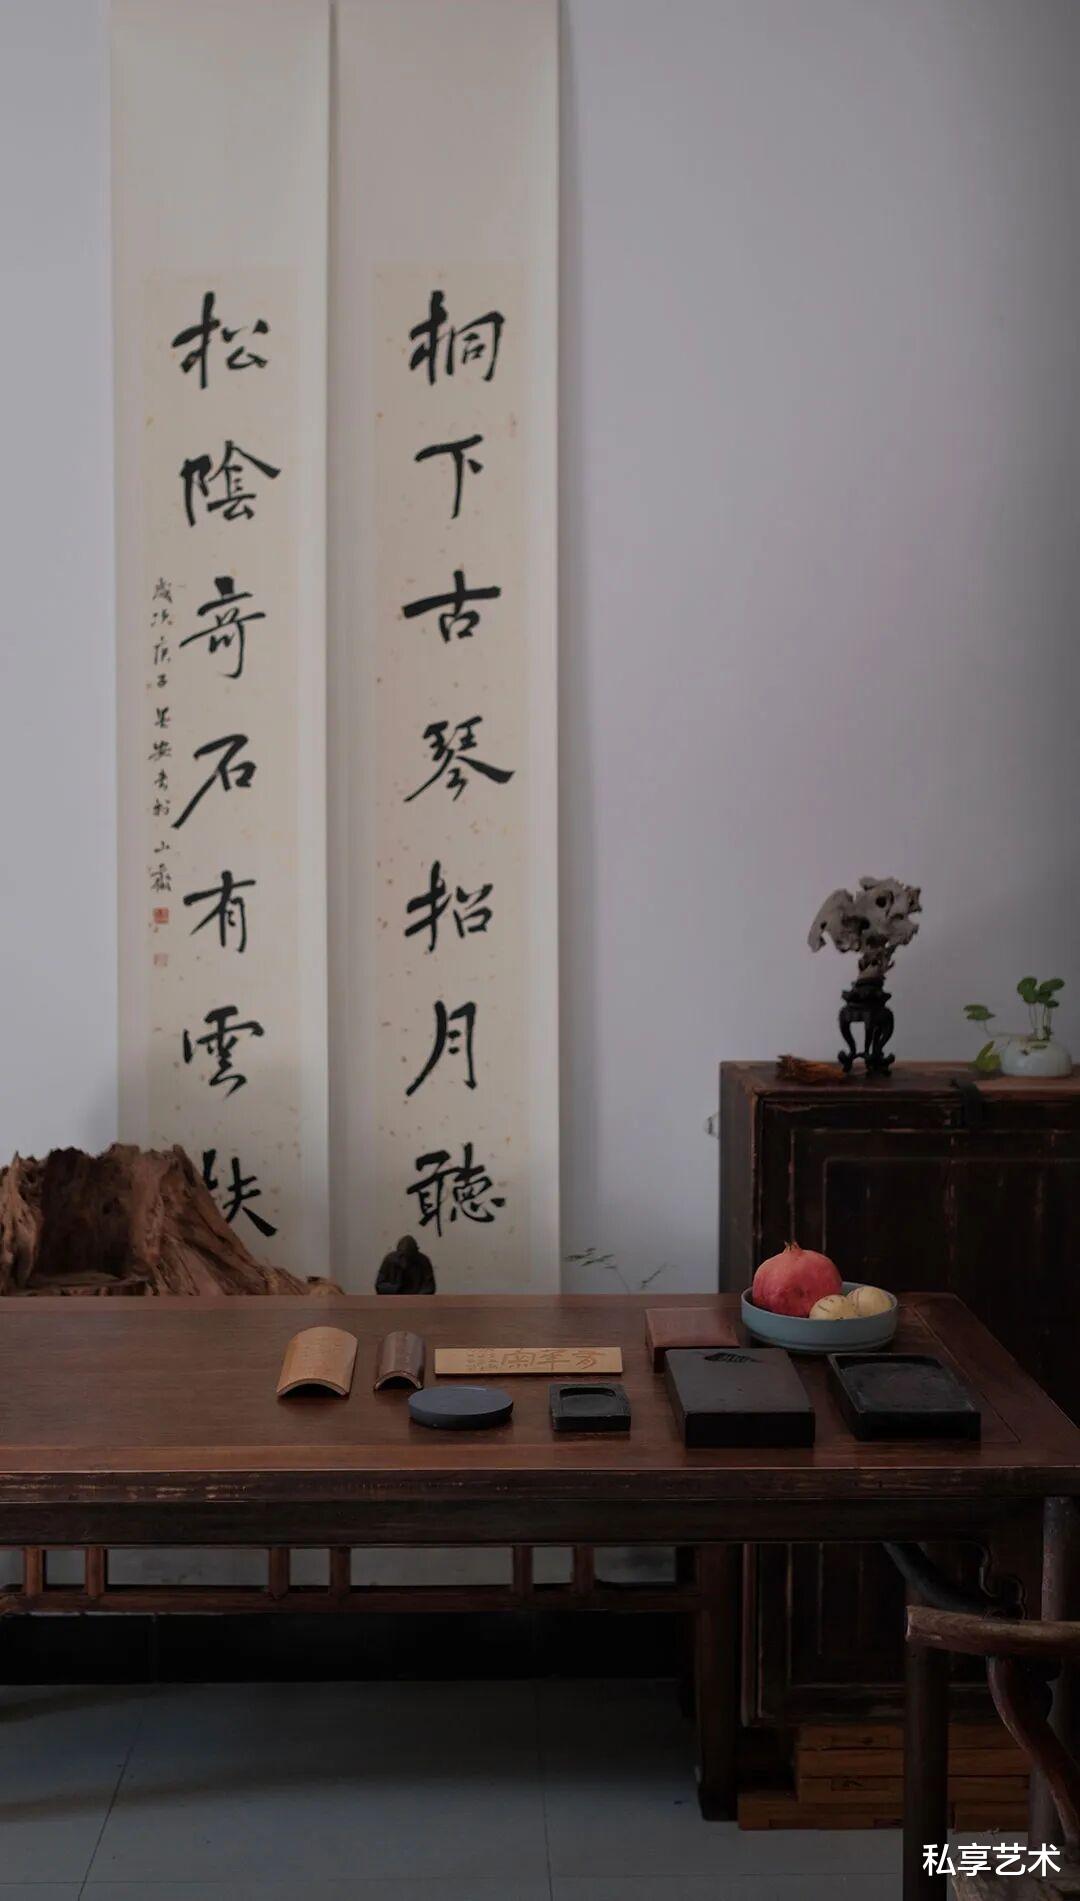 桐下古琴招月聽
松陰奇石有雲
歲次庚子
山齋
私享艺术